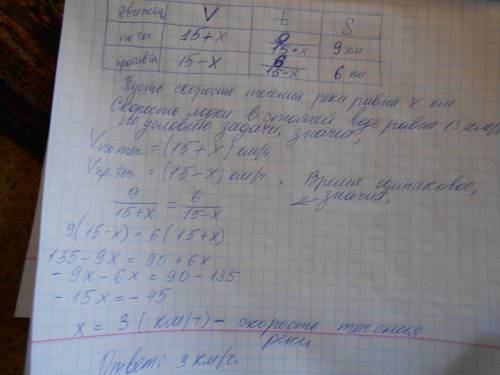 движен V t S
по теч. 15+x 9/15+x 9 км
против т. 15-x 6/15-x 6 км
Пусть скорость течения реки равна x км
Скорость лодки в стоячей воде равна 15 км/ч
по условию задачи, значит,
V по теч. = (15+x) км/ч.
V пр. теч. = (15-x) км/ч. Время одинаковое,
значит,
9/15+x = 6/15-x
9(15-x) = 6(15+x)
135-9x = 90+6x
-9x-6x = 90-135
-15x = -45
x = 3 (км/ч) - скорость течения
реки
Ответ: 3 км/ч.